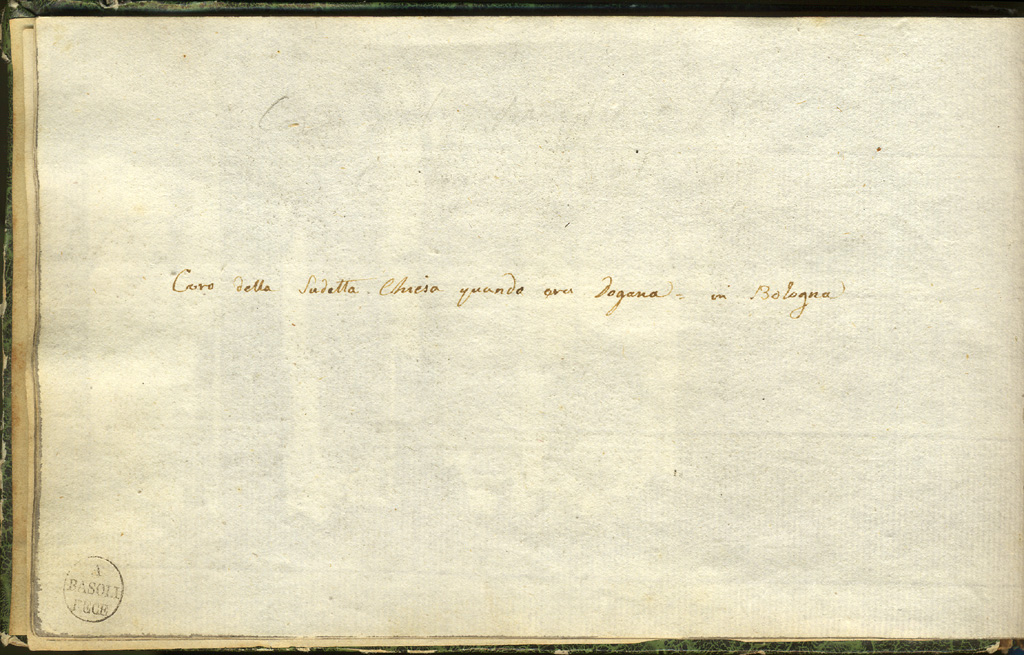 Coro della Sudetta Chiesa quando era Dogana = in Bologna
A
BASOLI
FECE